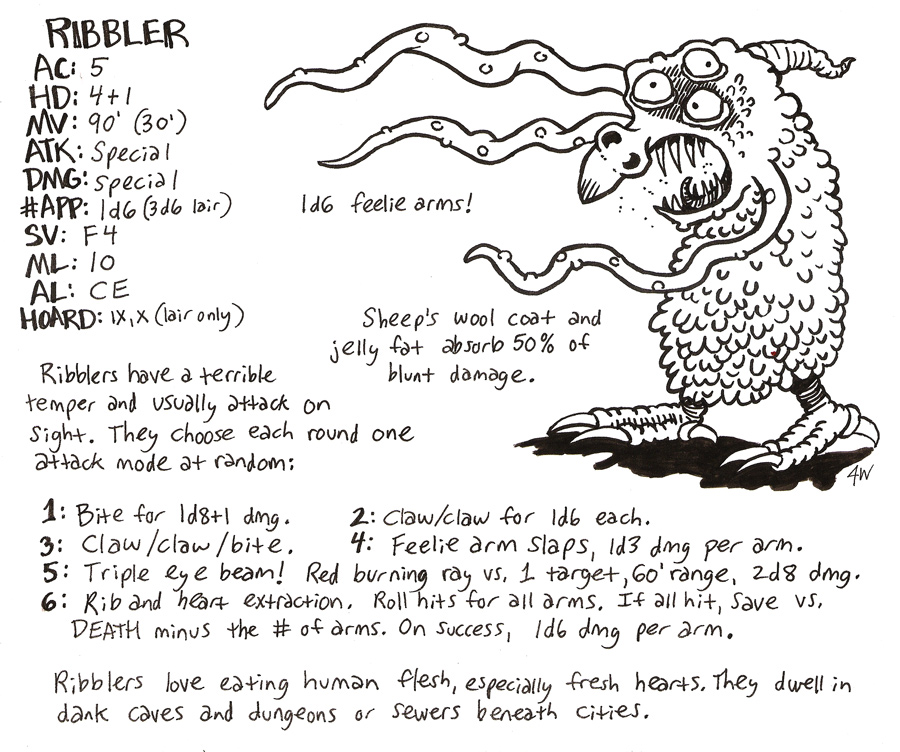 RIBBLER
AC: 5
HD: 4+1
MV: 90' (30')
ATK: Special
DMG: special
#APP: 1d6 (3d6 lair)
SV: F4
ML: 10
AL: CE
HOARD: IX, X (lair only)
1d6 feelie arms!
Sheep's wool coat and
jelly fat absorb 50% of
blunt damage.
Ribblers have a terrible
temper and usually attack on
sight. They choose each round one
attack mode at random:
1: Bite for 1d8+1 dmg.
2: Claw/claw for 1d6 each.
3: Claw/claw/bite.
4: Feelie arm slaps, 1d3 dmg per arm.
5: Triple eye beam! Red burning ray vs. 1 target, 60' range, 2d8 dmg.
6: Rib and heart extraction. Roll hits for all arms. If all hit, Save vs.
DEATH minus the # of arms. On success, 1d6 dmg per arm.
Ribblers love eating human flesh, especially fresh hearts. They dwell in
dank caves and dungeons or sewers beneath cities.
4W